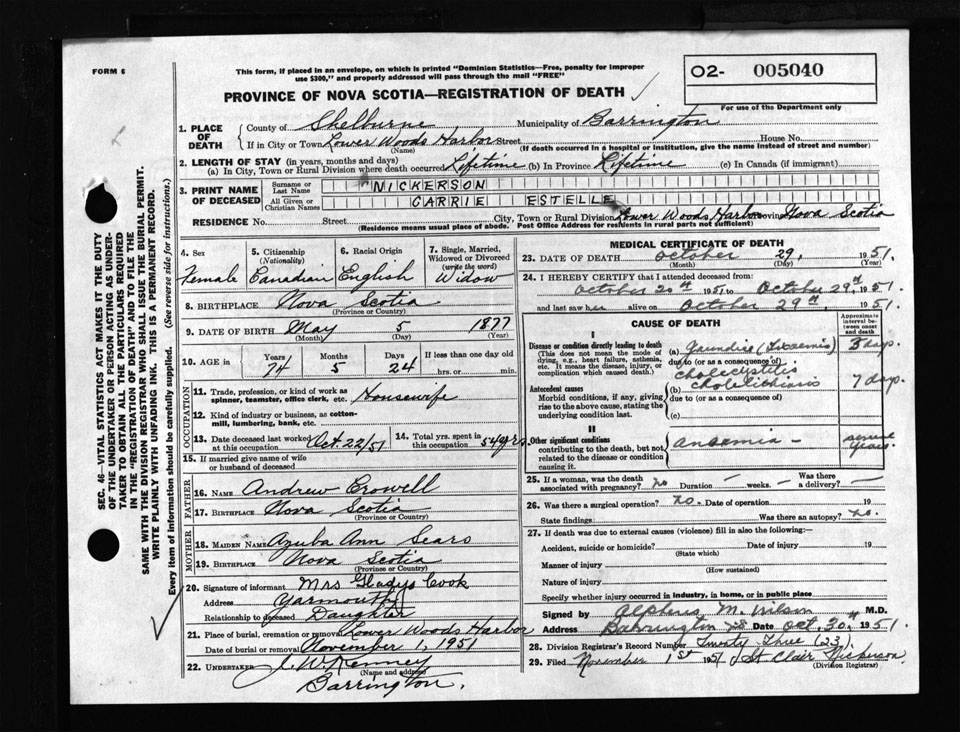 FORM 6
This form, if placed in an envelope, on which is printed "Dominion Statistics—Free, penalty for improper
use $300," and properly addressed will pass through the mail "FREE"
O2- 005040
For use of the Department only
PROVINCE OF NOVA SCOTIA—REGISTRATION OF DEATH
SEC. 46—VITAL STATISTICS ACT MAKES IT THE DUTY
OF THE UNDERTAKER OR PERSON ACTING AS UNDER-
TAKER TO OBTAIN ALL THE PARTICULARS REQUIRED
IN THE "REGISTRATION OF DEATH" AND TO FILE THE
SAME WITH THE DIVISION REGISTRAR WHO SHALL ISSUE THE BURIAL PERMIT.
WRITE PLAINLY WITH UNFADING INK. THIS IS A PERMANENT RECORD.
Every item of information should be carefully supplied. (See reverse side for instructions.)
1. PLACE OF DEATH
County of Shelburne Municipality of Barrington
If in City or Town Lower Woods Harbor Street House No.
(Name) (If death occurred in a hospital or institution, give the name instead of street and number)
2. LENGTH OF STAY (in years, months and days)
(a) In City, Town or Rural Division where death occurred Lifetime (b) In Province Lifetime (c) In Canada (if immigrant)
3. PRINT NAME OF DECEASED
Surname or Last Name NICKERSON
All Given or Christian Names CARRIE ESTELLE
RESIDENCE No. Street City, Town or Rural Division Lower Woods Harbor Province Nova Scotia
(Residence means usual place of abode. Post Office Address for residents in rural parts not sufficient)
4. Sex Female
5. Citizenship (Nationality) Canadian
6. Racial Origin English
7. Single, Married, Widowed or Divorced (write the word) Widow
8. BIRTHPLACE Nova Scotia
(Province or Country)
9. DATE OF BIRTH May 5 1877
(Month) (Day) (Year)
10. AGE IN Years 74 Months 5 Days 24 If less than one day old hrs. or min.
OCCUPATION
11. Trade, profession, or kind of work as spinner, teamster, office clerk, etc. Housewife
12. Kind of industry or business, as cotton-mill, lumbering, bank, etc.
13. Date deceased last worked at this occupation Oct. 22/51
14. Total yrs. spent in this occupation 54 yrs
15. If married give name of wife or husband of deceased
FATHER
16. NAME Andrew Crowell
17. BIRTHPLACE Nova Scotia
(Province or Country)
MOTHER
18. MAIDEN NAME Azuba Ann Sears
19. BIRTHPLACE Nova Scotia
(Province or Country)
20. Signature of informant Mrs Gladys Cook
Address Yarmouth
Relationship to deceased Daughter
21. Place of burial, cremation or removal Lower Woods Harbor
Date of burial or removal November 1, 1951
22. UNDERTAKER J. W. Kenney
(Name and address)
Barrington.
MEDICAL CERTIFICATE OF DEATH
23. DATE OF DEATH October 29, 1951.
(Month) (Day)
24. I HEREBY CERTIFY that I attended deceased from:
October 20th 1951 to October 29th 1951.
and last saw her alive on October 29th 1951.
CAUSE OF DEATH
Approximate interval between onset and death
I
Disease or condition directly leading to death
(This does not mean the mode of dying, e.g., heart failure, asthenia, etc. It means the disease, injury, or complication which caused death.)
(a) Jaundice (Toxaemia) 3 days.
due to (or as a consequence of)
Cholecystitis
(b) Cholelithiasis 7 days.
Antecedent causes
Morbid conditions, if any, giving rise to the above cause, stating the underlying condition last.
due to (or as a consequence of)
(c)
II
Other significant conditions
contributing to the death, but not related to the disease or condition causing it.
Anaemia — several years.
25. If a woman, was the death associated with pregnancy? no Duration — weeks. — Was there a delivery? —
26. Was there a surgical operation? no. Date of operation 19
State findings Was there an autopsy? no.
27. If death was due to external causes (violence) fill in also the following:—
Accident, suicide or homicide? Date of injury 19
(State which)
Manner of injury
(How sustained)
Nature of injury
Specify whether injury occurred in industry, in home, or in public place
Signed by Alpheus M. Wilson M.D.
Address Barrington N.S. Date Oct. 30th 1951.
28. Division Registrar's Record Number Twenty Three (23)
29. Filed November 1st 1951 St. Clair Nickerson.
(Division Registrar)